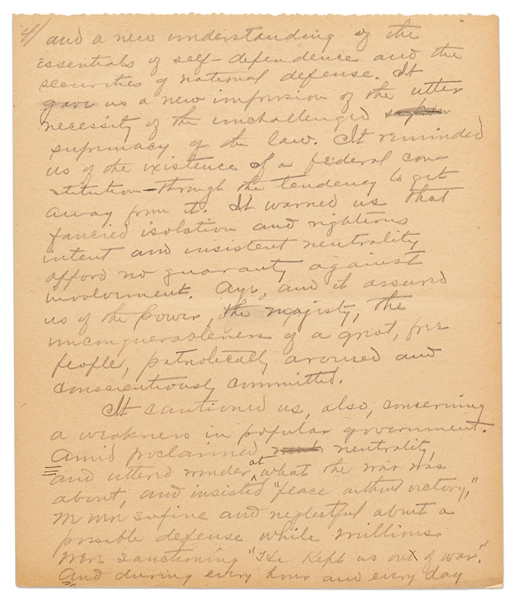 4/ and a new understanding of the
essentials of self-dependence and the
securities of national defense. It
gave us a new impression of the utter
necessity of the unchallenged
supremacy of the law. It reminded
us of the existence of a federal con
stitution - through the tendency to get
away from it. It warned us that
fancied isolation and righteous
intent and insistent neutrality
afford no guaranty against
involvement. Aye, and it assured
us of the power, the majesty, the
unconquerableness of a great, free
people, patriotically aroused and
conscientiously committed.
It cautioned us, also, concerning
a weakness in popular government.
Amid proclaimed neutrality,
and uttered wonder at what the war was
about, and insisted "peace without victory,"
we were supine and neglectful about a
possible defense while millions
were sanctioning "He kept us out of war."
And during every hour and every day